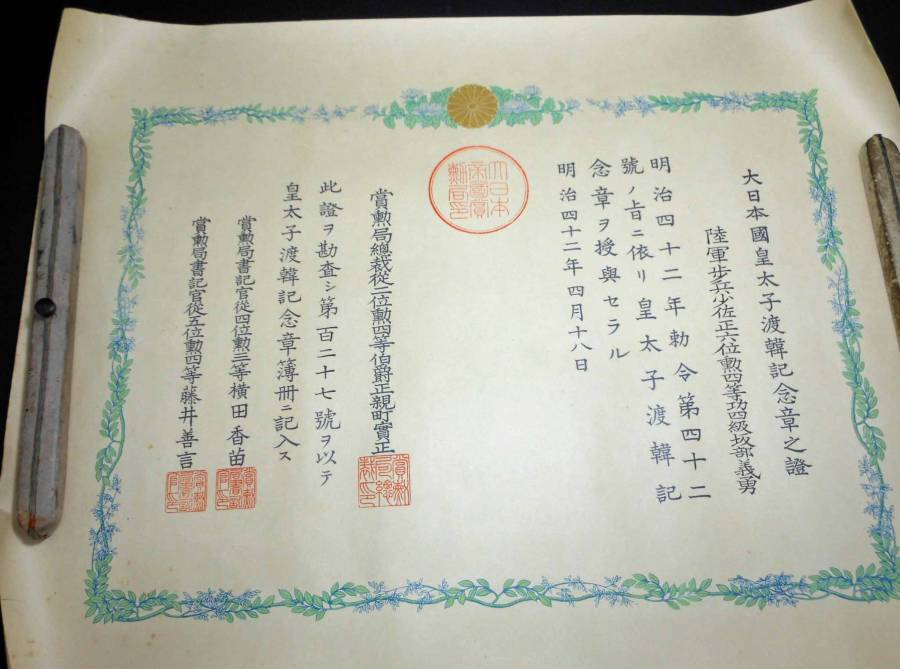 大日本國皇太子渡韓記念章之證
陸軍步兵少佐正六位勲四等功四級坂部義勇
明治四十二年勅令第四十二
號ノ旨ニ依リ皇太子渡韓記
念章ヲ授與セラル
明治四十二年四月十八日
大日本
帝國賞
勲局印
賞勲局總裁從二位勲四等伯爵正親町實正
此證ヲ勘査シ第百二十七號ヲ以テ
皇太子渡韓記念章簿冊ニ記入ス
賞勲局書記官從四位勲三等橫田香苗
賞勲局書記官從五位勲四等藤井善言